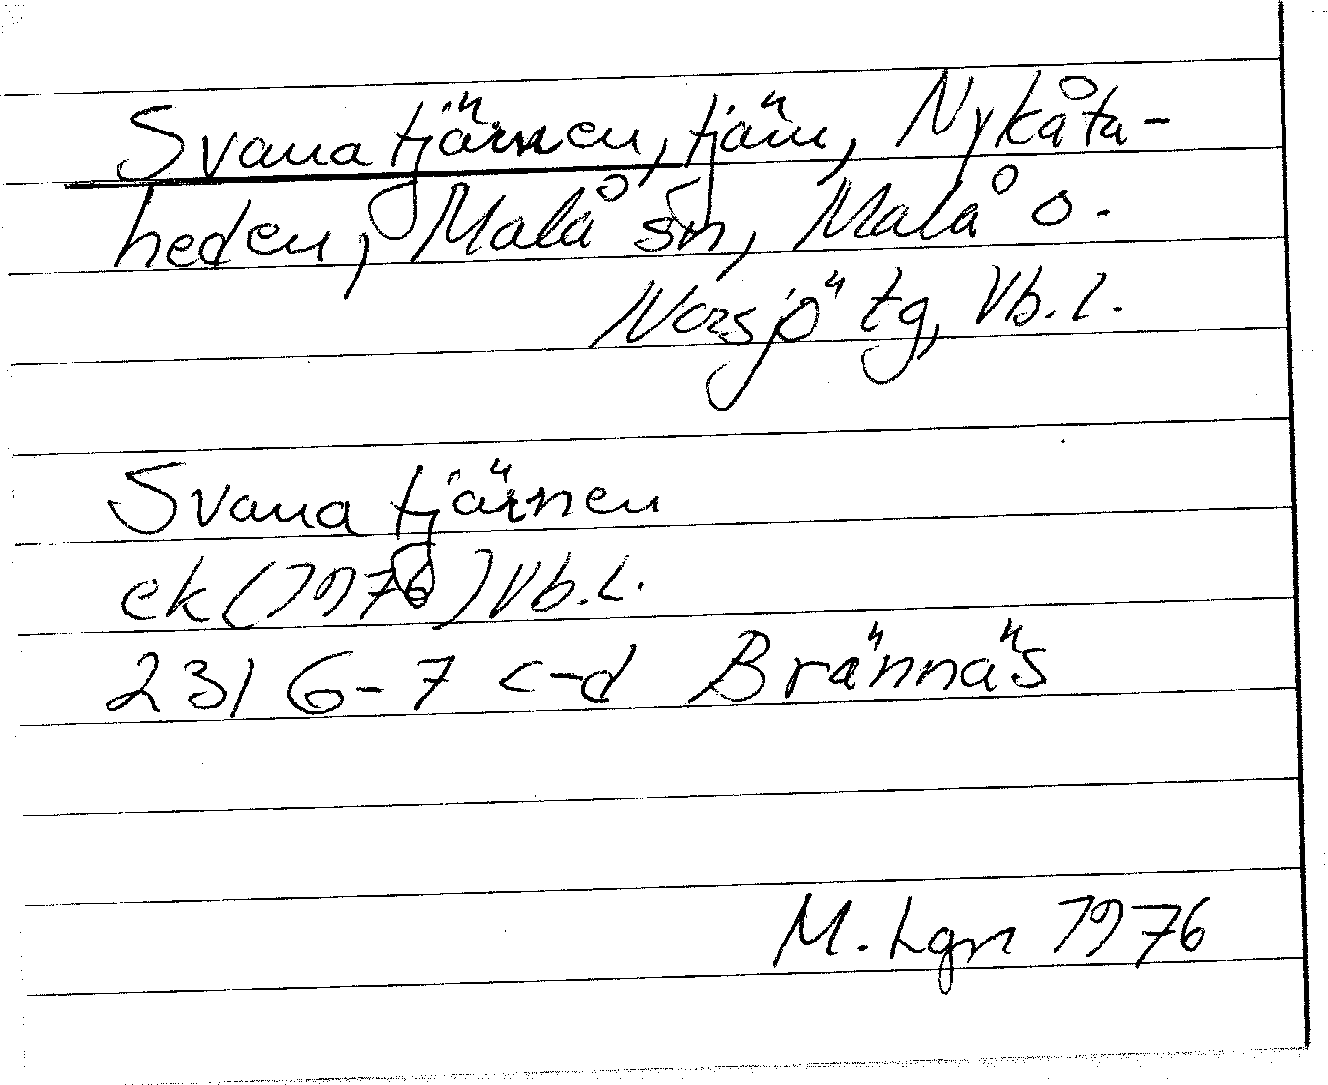 Svanatjärnen, tjärn, Nykåta-
heden, Malå sn, Malå o.
Norsjö tg, Vb. l.
Svanatjärnen
ek (1976) Vb. L.
231 6-7 c-d Brännäs
M. Lgn 1976